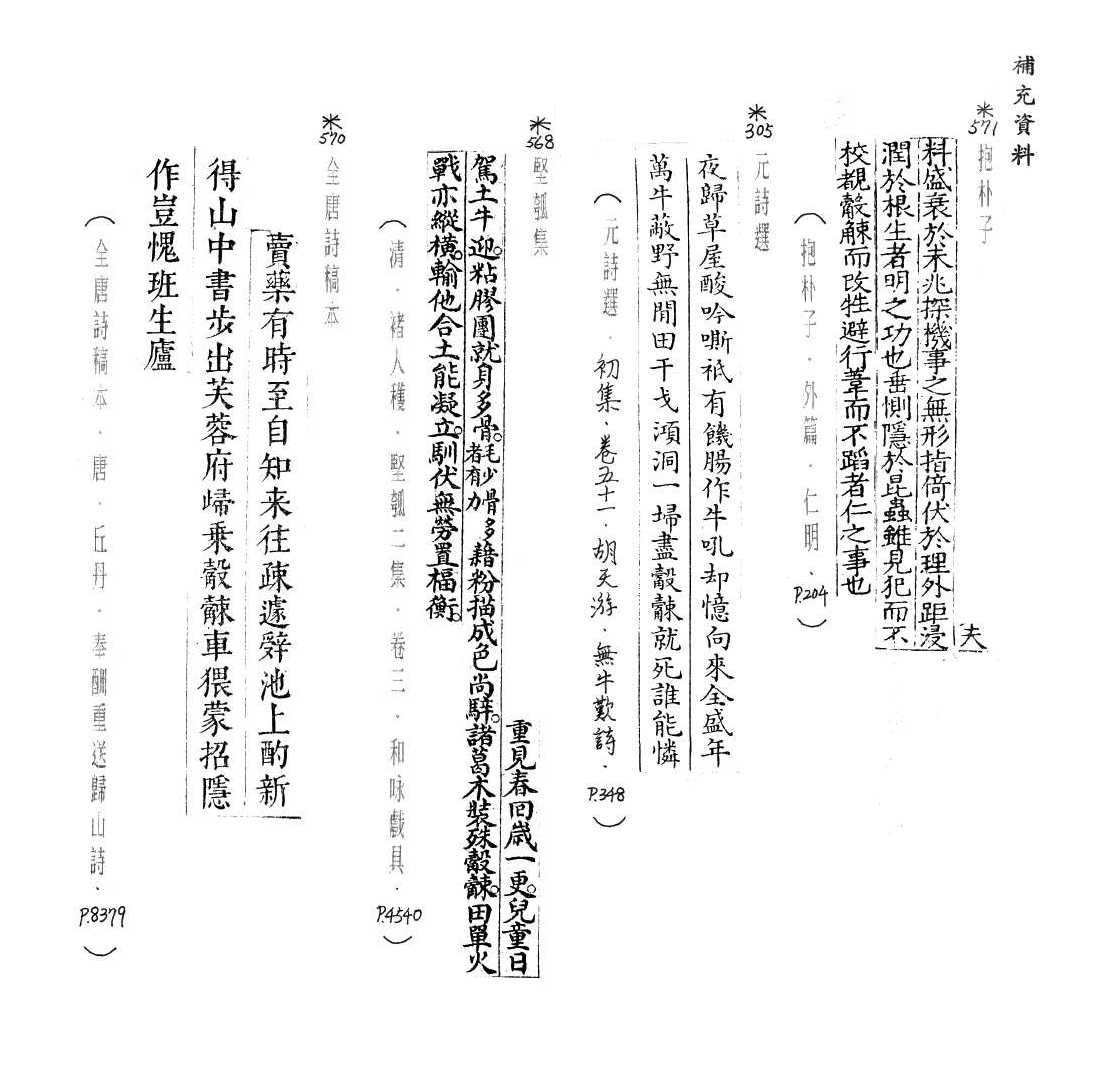 補充資料
※571
抱朴子
夫
料盛衰於未兆探機事之無形指倚伏於理外距浸
潤於根生者明之功也垂惻隱於昆蟲雖見犯而不
校覩觳觫而改牲避行葦而不蹈者仁之事也
(抱朴子．外篇．仁明．P.204)
※305
元詩選
夜歸草屋酸吟嘶祇有饑腸作牛吼却憶向來全盛年
萬牛蔽野無閒田干戈澒洞一埽盡觳觫就死誰能憐
(元詩選．初集．卷五十一．胡天游．無牛歎詩．P.348)
※568
堅瓠集
重見春回歲一更。兒童日
駕土牛迎。粘膠團就身多骨。毛少骨多者有力藉粉描成色尚騂。諸葛木裝殊觳觫。田單火
戰亦縱橫。輸他合土能凝立。馴伏無勞置楅衡。
(清．褚人穫．堅瓠二集．卷三．和咏戲具．P.4540)
※570
全唐詩稿本
賣藥有時至自知来往疎遽辤池上酌新
得山中書步出芙蓉府歸乗觳觫車猥蒙招隱
作豈愧班生廬
(全唐詩稿本．唐．丘丹．奉酬重送歸山詩．P.8379)